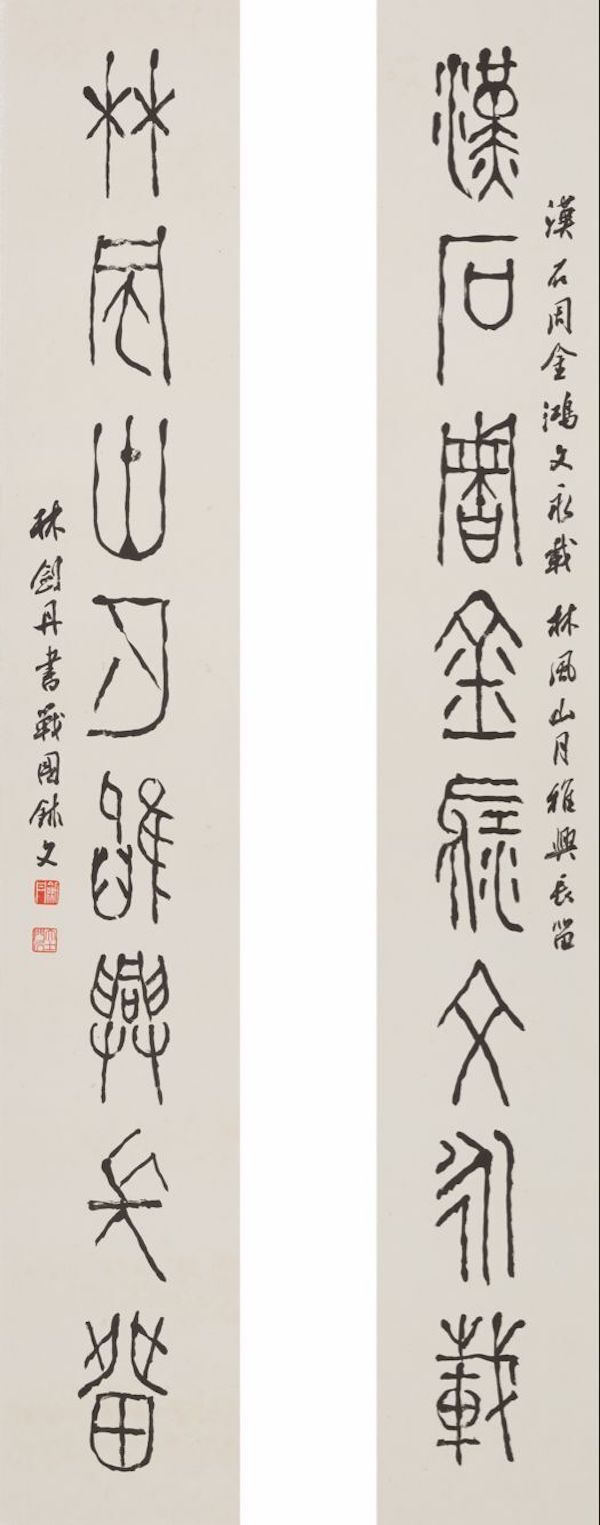 漢石周金鴻文永載 林風山月雅興長留
漢石周金鴻文永載
林風山月雅興長留
林劍丹書戰國鉥文